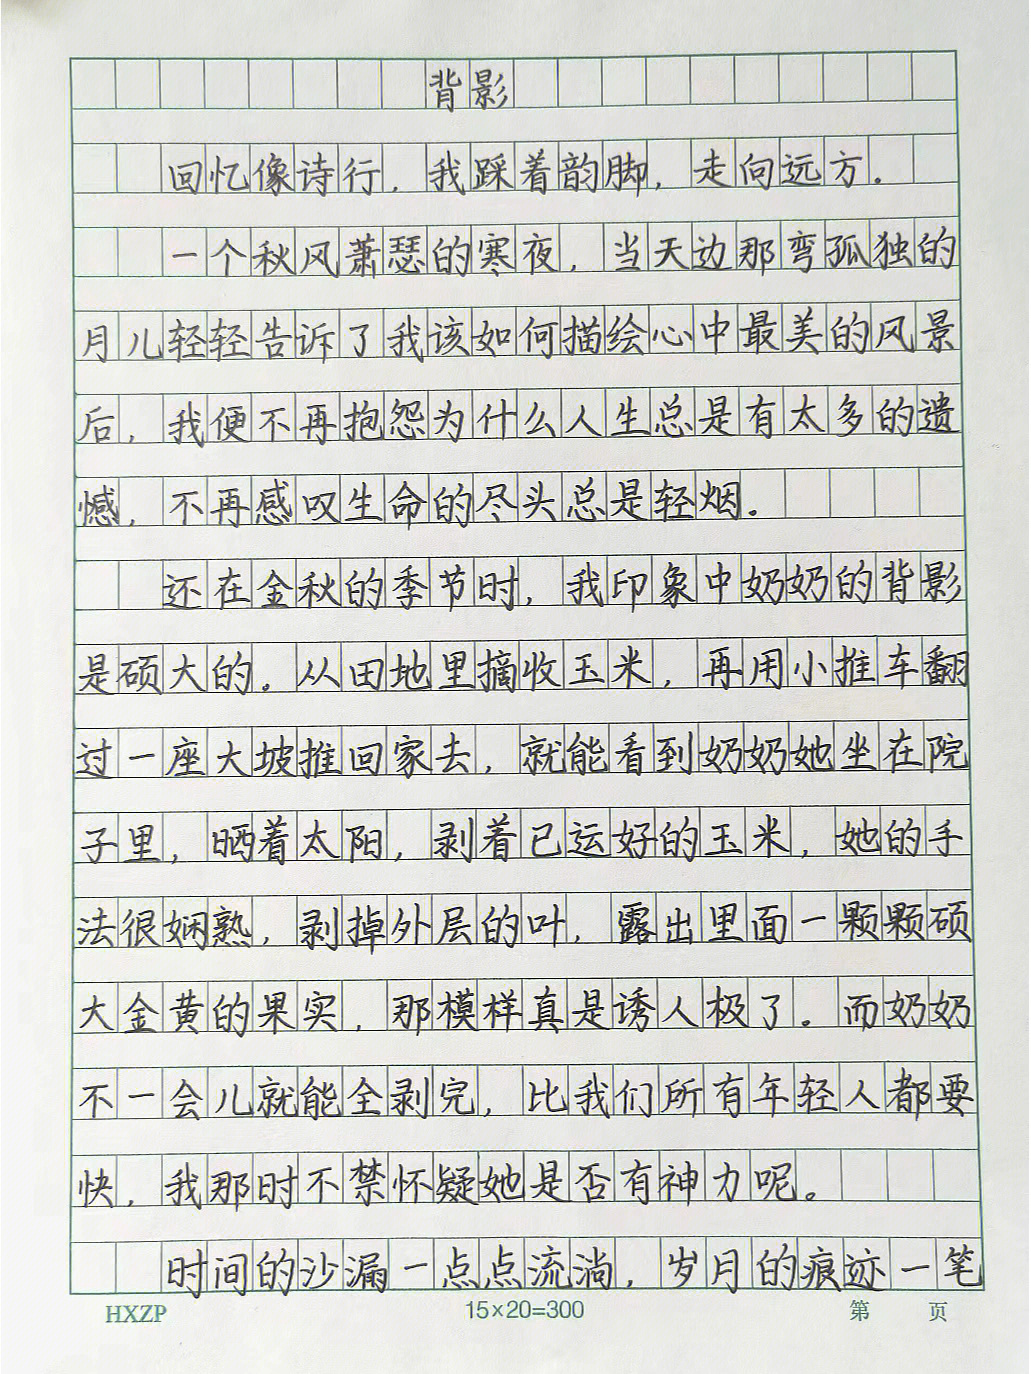 背影
回忆像诗行，我踩着韵脚，走向远方.
一个秋风萧瑟的寒夜，当天边那弯孤独的
月儿轻轻告诉了我该如何描绘心中最美的风景
后，我便不再抱怨为什么人生总是有太多的遗
憾，不再感叹生命的尽头总是轻烟.
还在金秋的季节时，我印象中奶奶的背影
是硕大的。从田地里摘收玉米，再用小推车翻
过一座大坡推回家去，就能看到奶奶她坐在院
子里，晒着太阳，剥着已运好的玉米，她的手
法很娴熟，剥掉外层的叶，露出里面一颗颗硕
大金黄的果实，那模样真是诱人极了。而奶奶
不一会儿就能全剥完，比我们所有年轻人都要
快，我那时不禁怀疑她是否有神力呢。
时间的沙漏一点点流淌，岁月的痕迹一笔
HXZP 15×20=300 第 页